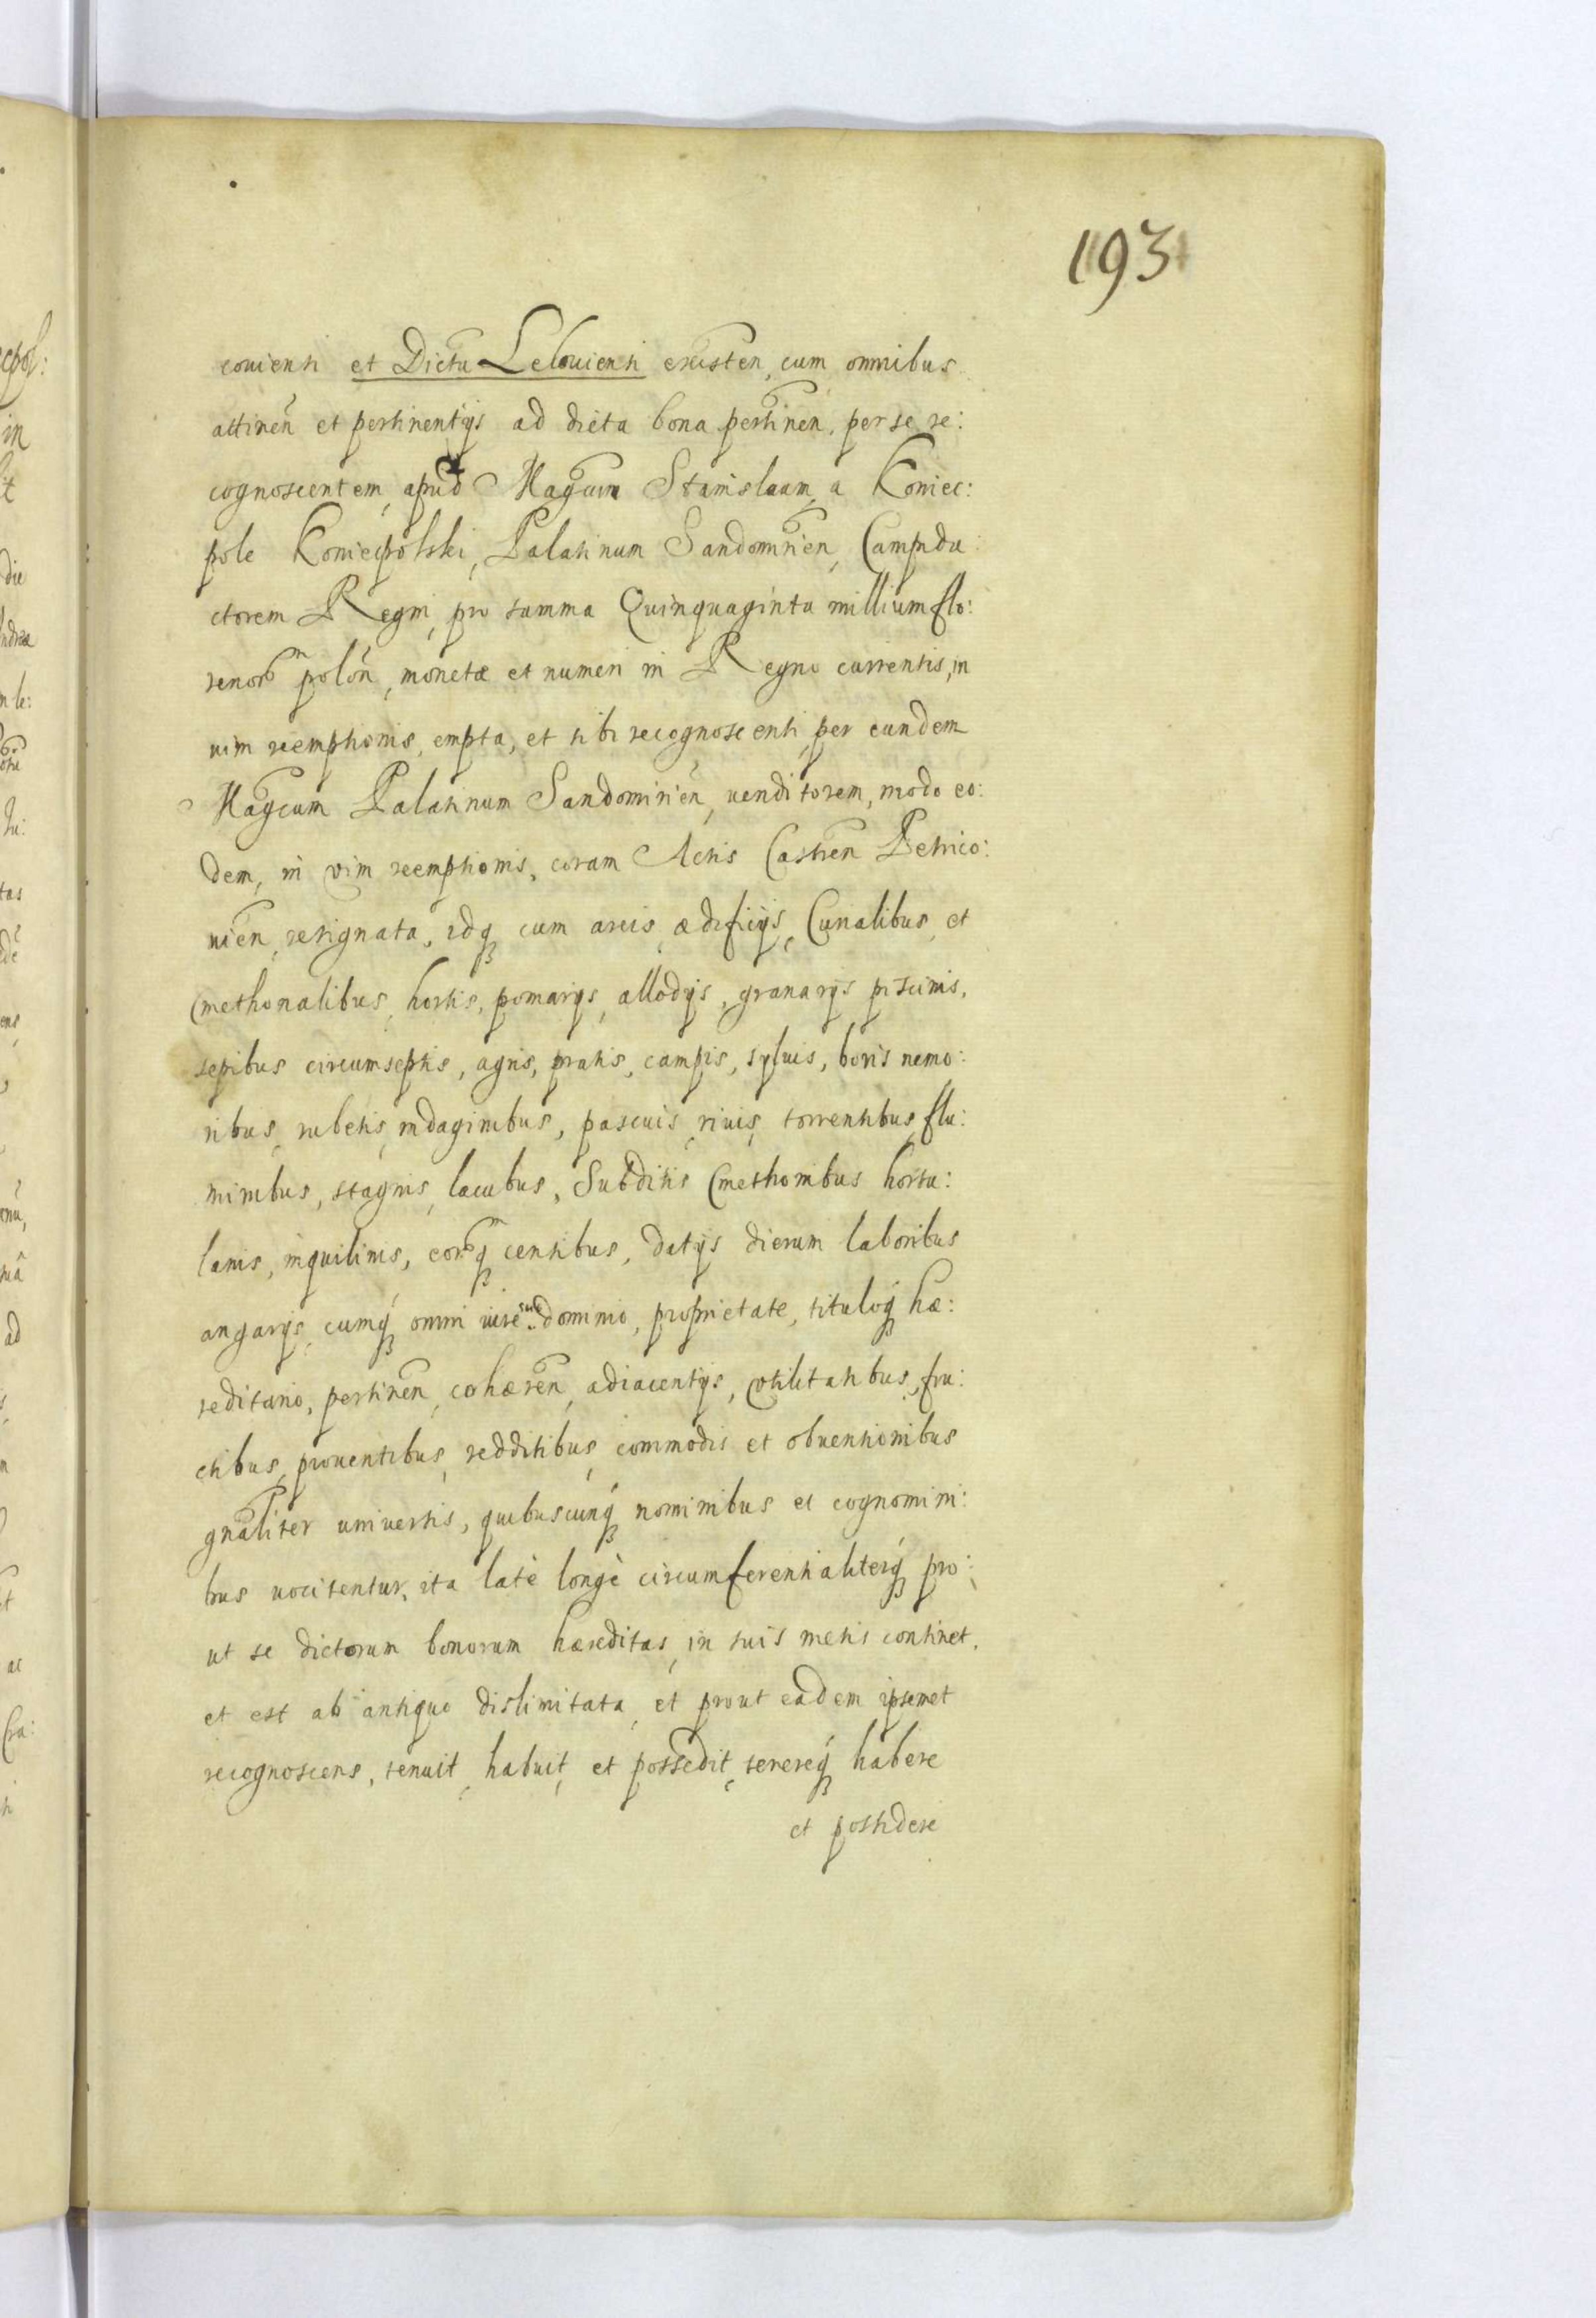 193
couiensi et Dictu Lelouiensi existen, cum omnibus
attinen̄ et pertinentijs ad dicta bona pertinen̄, per se re:
cognoscentem, apud Magcum Stanislaum, a Koniec:
pole Koniecpolski, Palatinum Sandomirien̄, Campidu:
ctorem Regni, pro summa Quinquaginta millium flo:
renorm polon̄, monetæ et numeri in Regno currentis, in
uim reemptionis, empta, et sibi recognoscenti, per eundem
Magcum Palatinum Sandomirien̄, uenditorem, modo eo:
dem, in vim reemptionis, coram Actis Castren̄ Petrico:
uien̄, resignata, idq cum arcis, ædificijs, Curialibus, et
Cmethonalibus, hortis, pomarijs, allodijs, granarijs piscinis,
sepibus circumseptis, agris, pratis, campis, syluis, boris nemo:
ribus, rubetis, indaginibus, pascuis, riuis, torrentibus, flu:
minibus, stagnis, lacubus, Subditis Cmethonibus hortu:
lanis, inquilinis, eormq censibus, datijs dierum laboribus
angarijs, cumq omni iure suo dominio, proprietate, tituloq hæ:
reditario, pertinen̄, cohæren̄, adiacentijs, vtilitatibus, fru:
ctibus, prouentibus, redditibus, commodis et obuentionibus
gn̄aliter uniuersis, quibuscunq nominibus et cognomini:
bus uocitentur, ita latè longè circumferentialiterq pro:
ut se dictorum bonorum hæreditas, in suis metis continet,
et est ab antiquo dislimitata, et prout eadem ipsemet
recognoscens, tenuit, habuit, et possedit, tenereq habere
et possidere